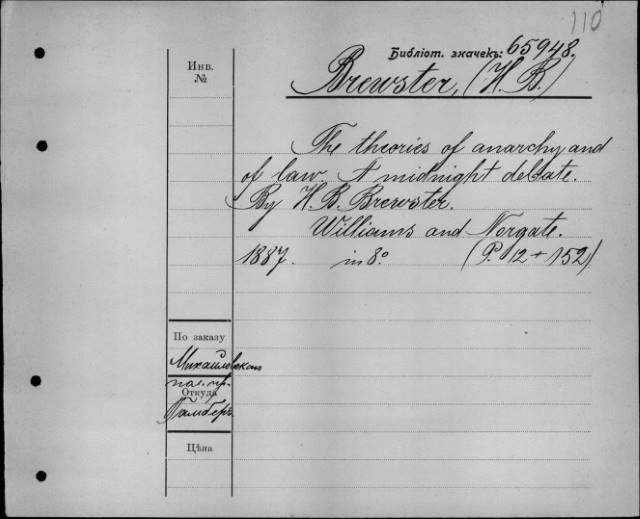 110
Библіот. значекъ: 65948.
Инв.
№
Brewster, (H. B.)
The theories of anarchy and
of law. A midnight debate.
By H. B. Brewster.
Williams and Norgate.
1887. in 8° (P. 12 + 152)
По заказу
Михайловскаго
Откуда
Цѣна